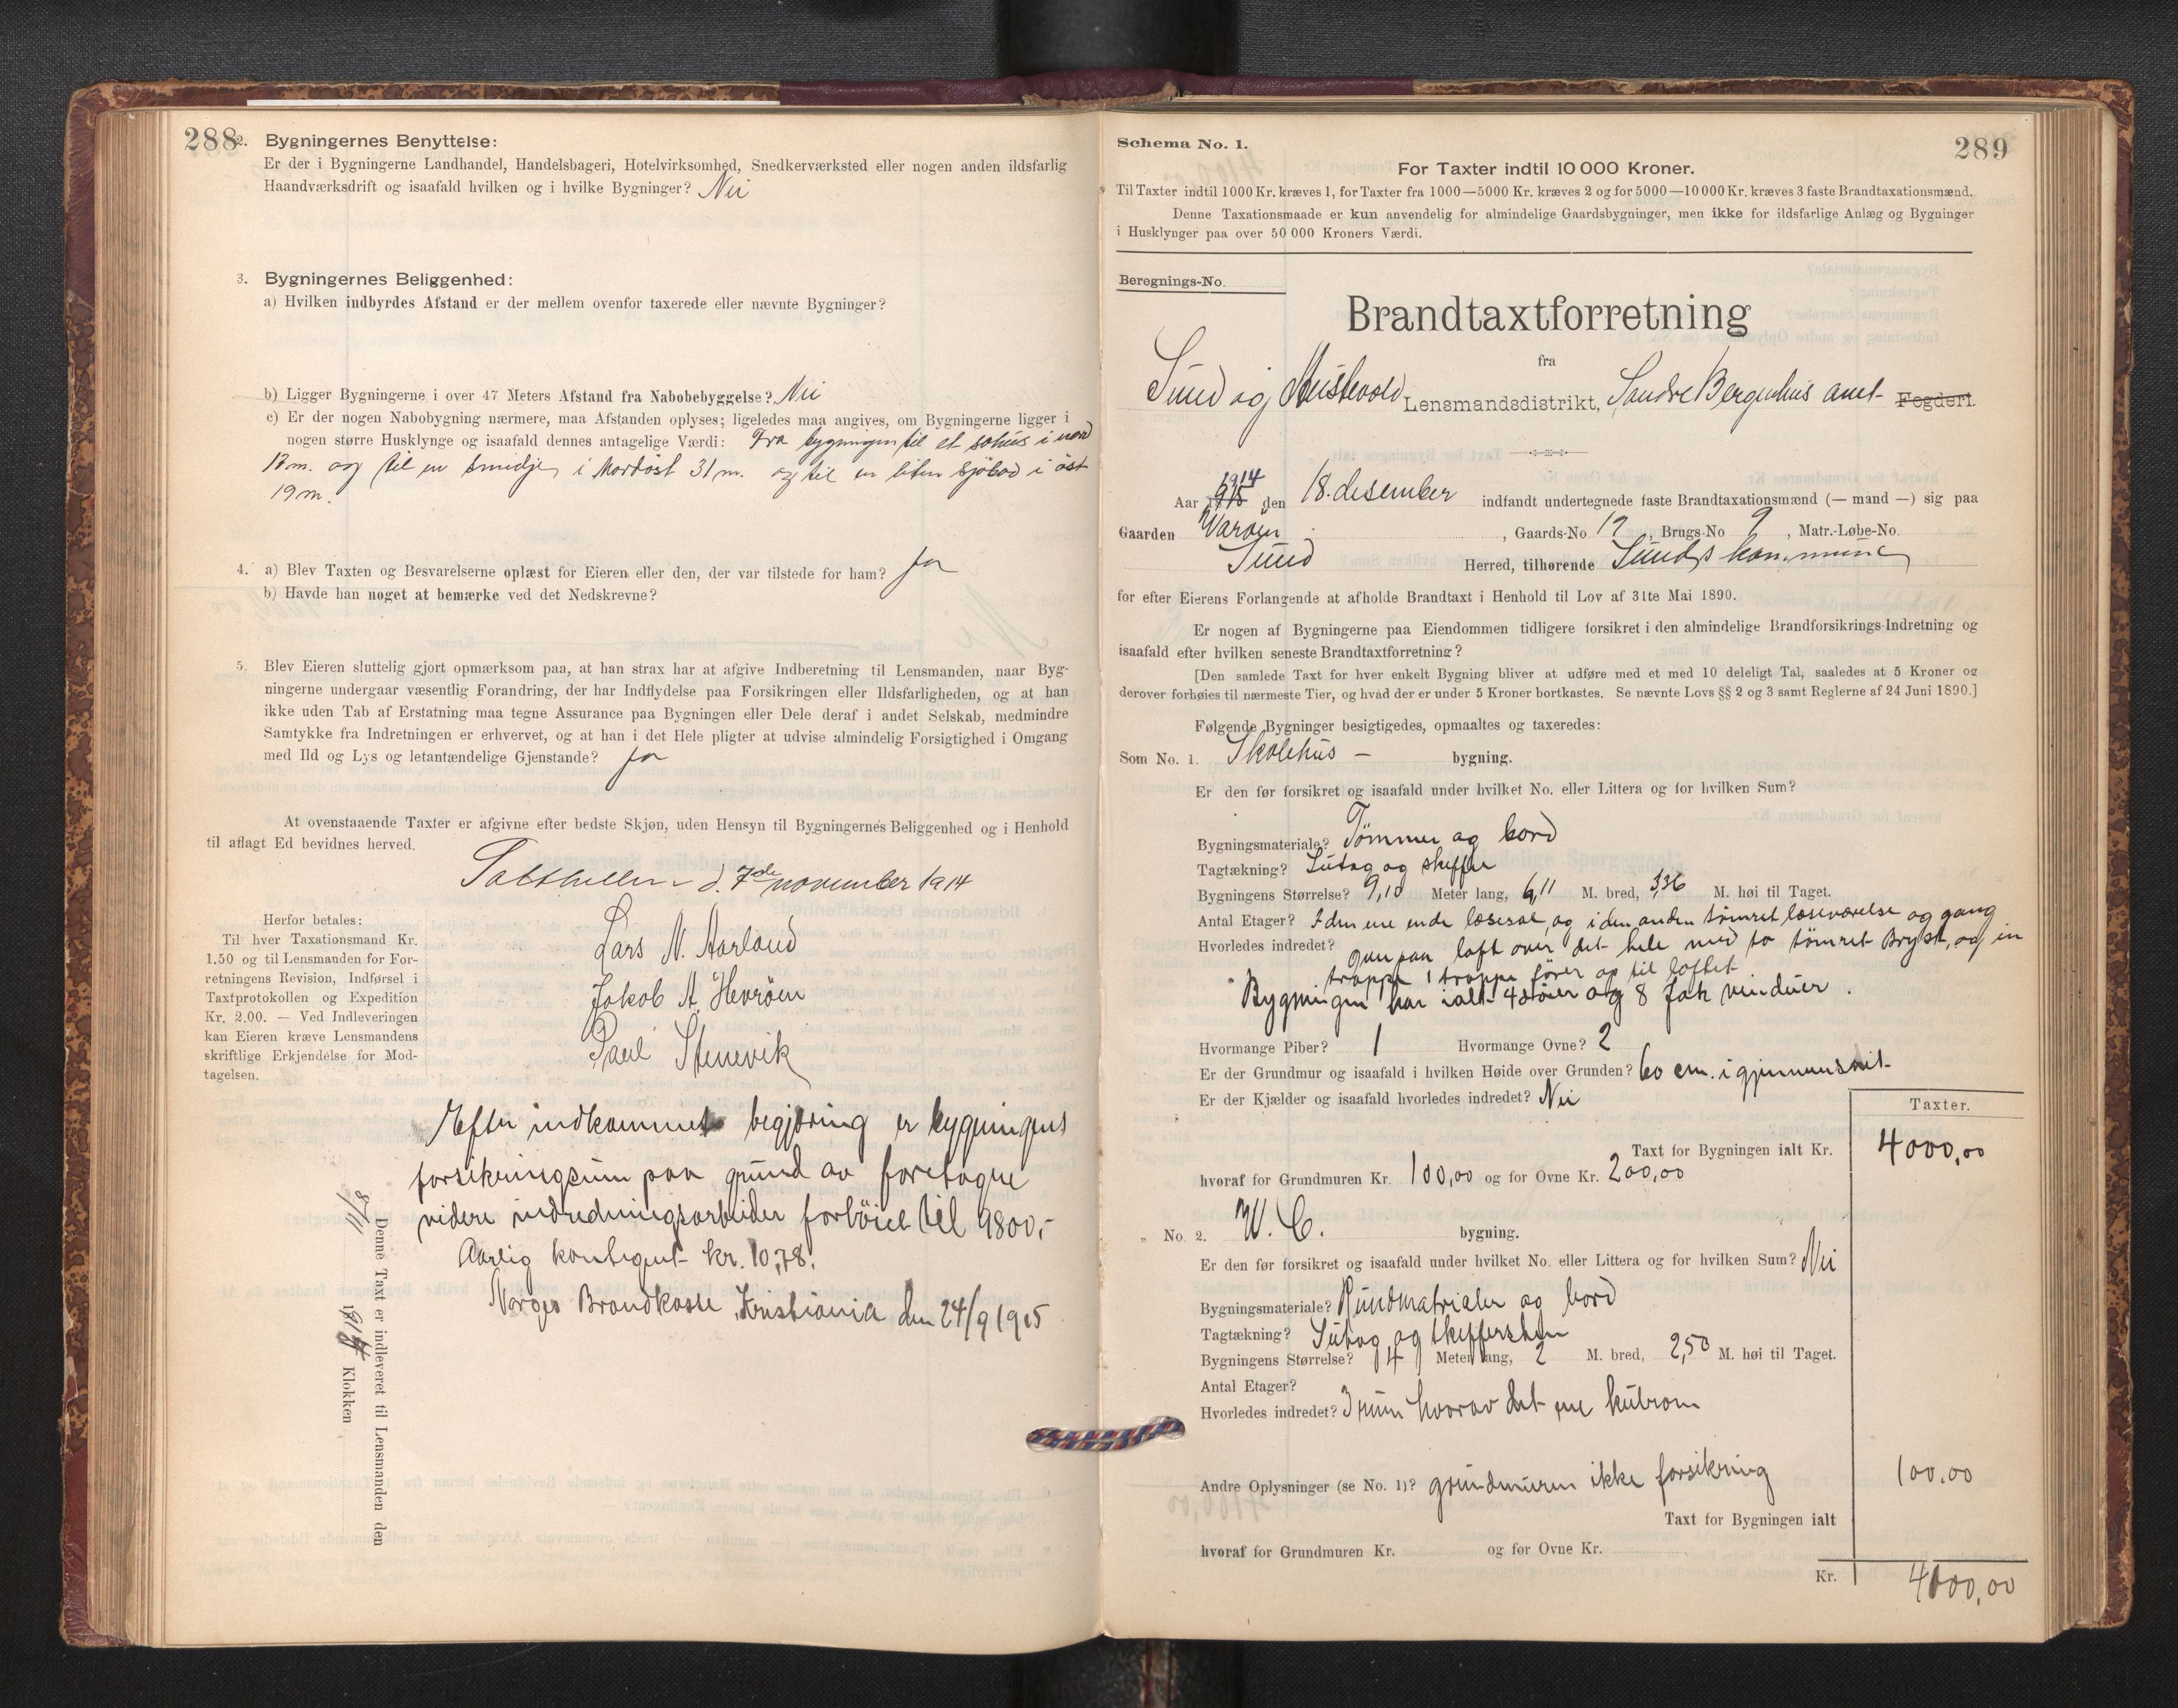 288
2. Bygningernes Benyttelse:
Er der i Bygningerne Landhandel, Handelsbageri, Hotelvirksomhed, Snedkerværksted eller nogen anden ildsfarlig
Haandværksdrift og isaafald hvilken og i hvilke Bygninger? Nei
3. Bygningernes Beliggenhed:
a) Hvilken indbyrdes Afstand er der mellem ovenfor taxerede eller nævnte Bygninger?
b) Ligger Bygningerne i over 47 Meters Afstand fra Nabobebyggelse? Nei
c) Er der nogen Nabobygning nærmere, maa Afstanden oplyses; ligeledes maa angives, om Bygningerne ligger i
nogen større Husklynge og isaafald dennes antagelige Værdi: Fra bygningen til et sohus i nord
13 m. og til en smidje i Nordöst 31 m. og til en liten Sjöbod i öst
19 m.
4. a) Blev Taxten og Besvarelserne oplæst for Eieren eller den, der var tilstede for ham? Ja
b) Havde han noget at bemærke ved det Nedskrevne?
5. Blev Eieren sluttelig gjort opmærksom paa, at han strax har at afgive Indberetning til Lensmanden, naar Byg-
ningerne undergaar væsentlig Forandring, der har Indflydelse paa Forsikringen eller Ildsfarligheden, og at han
ikke uden Tab af Erstatning maa tegne Assurance paa Bygningen eller Dele deraf i andet Selskab, medmindre
Samtykke fra Indretningen er erhvervet, og at han i det Hele pligter at udvise almindelig Forsigtighed i Omgang
med Ild og Lys og letantændelige Gjenstande? Ja
At ovenstaaende Taxter er afgivne efter bedste Skjøn, uden Hensyn til Bygningernes Beliggenhed og i Henhold
til aflagt Ed bevidnes herved.
d. 7de november 1914
Herfor betales:
Til hver Taxationsmand Kr.
1.50 og til Lensmanden for For-
retningens Revision, Indførsel i
Taxtprotokollen og Expedition
Kr. 2.00. — Ved Indleveringen
kan Eieren kræve Lensmandens
skriftlige Erkjendelse for Mod-
tagelsen.
Lars N. Aarland
Jakob A. Hevröen
Paul Stenevik
Efter indkommet begjæring er bygningens
forsikringsum paa grund av foretagne
videre indredningsarbeider forhöiet til 9800,-
Aarlig kontigent kr. 10,78.
Norges Brandkasse, Kristiania den 24/9 1915
Denne Taxt er indleveret til Lensmanden den
8/11 1914 Klokken
Schema No. 1.
289
For Taxter indtil 10 000 Kroner.
Til Taxter indtil 1000 Kr. kræves 1, for Taxter fra 1000—5000 Kr. kræves 2 og for 5000—10 000 Kr. kræves 3 faste Brandtaxationsmænd.
Denne Taxationsmaade er kun anvendelig for almindelige Gaardsbygninger, men ikke for ildsfarlige Anlæg og Bygninger
i Husklynger paa over 50 000 Kroners Værdi.
Beregnings-No.
Brandtaxtforretning
fra
Sund og Austevold Lensmandsdistrikt, Söndre Bergenhus amt Fogderi.
1914
Aar 1915 den 18. desember indfandt undertegnede faste Brandtaxationsmænd (— mand —) sig paa
Gaarden Waröen, Gaards-No 19, Brugs-No 9, Matr.-Løbe-No.
Sund Herred, tilhørende Sunds kommune
for efter Eierens Forlangende at afholde Brandtaxt i Henhold til Lov af 31te Mai 1890.
Er nogen af Bygningerne paa Eiendommen tidligere forsikret i den almindelige Brandforsikrings-Indretning og
isaafald efter hvilken seneste Brandtaxtforretning?
[Den samlede Taxt for hver enkelt Bygning bliver at udføre med et med 10 deleligt Tal, saaledes at 5 Kroner og
derover forhøies til nærmeste Tier, og hvad der er under 5 Kroner bortkastes. Se nævnte Lovs §§ 2 og 3 samt Reglerne af 24 Juni 1890.]
Følgende Bygninger besigtigedes, opmaaltes og taxeredes:
Som No. 1. Skolehus — bygning.
Er den før forsikret og isaafald under hvilket No. eller Littera og for hvilken Sum?
Bygningsmateriale? Tömmer og bord
Tagtækning? Sutag og skiffer
Bygningens Størrelse? 9,10 Meter lang, 6,11 M. bred, 3,36 M. høi til Taget.
Antal Etager? I den ene ende læsesal, og i den anden tömret læseværelse og gang
Hvorledes indredet? oven paa loft over det hele med to tömret Bryst, og en
trappe 1 trappe förer op til loftet.
Bygningen har ialt 4 döier og 8 fak vinduer.
Hvormange Piber? 1 Hvormange Ovne? 2
Er der Grundmur og isaafald i hvilken Høide over Grunden? 60 cm. i gjennemsnit
Er der Kjælder og isaafald hvorledes indredet? Nei
Taxter.
Taxt for Bygningen ialt Kr. 4000,00
hvoraf for Grundmuren Kr. 100,00 og for Ovne Kr. 200,00
„ No. 2. W. C. bygning.
Er den før forsikret og isaafald under hvilket No. eller Littera og for hvilken Sum? Nei
Bygningsmateriale? Rundmatrialer og bord
Tagtækning? Sutag og skiffersten
Bygningens Størrelse? 4 Meter lang, 2 M. bred, 2,50 M. høi til Taget.
Antal Etager?
Hvorledes indredet? 3 rum hvorav det ene kulrom
Andre Oplysninger (se No. 1)? grundmuren ikke forsikring 100.00
Taxt for Bygningen ialt
hvoraf for Grundmuren Kr. og for Ovne Kr.
Kr. 4100,00